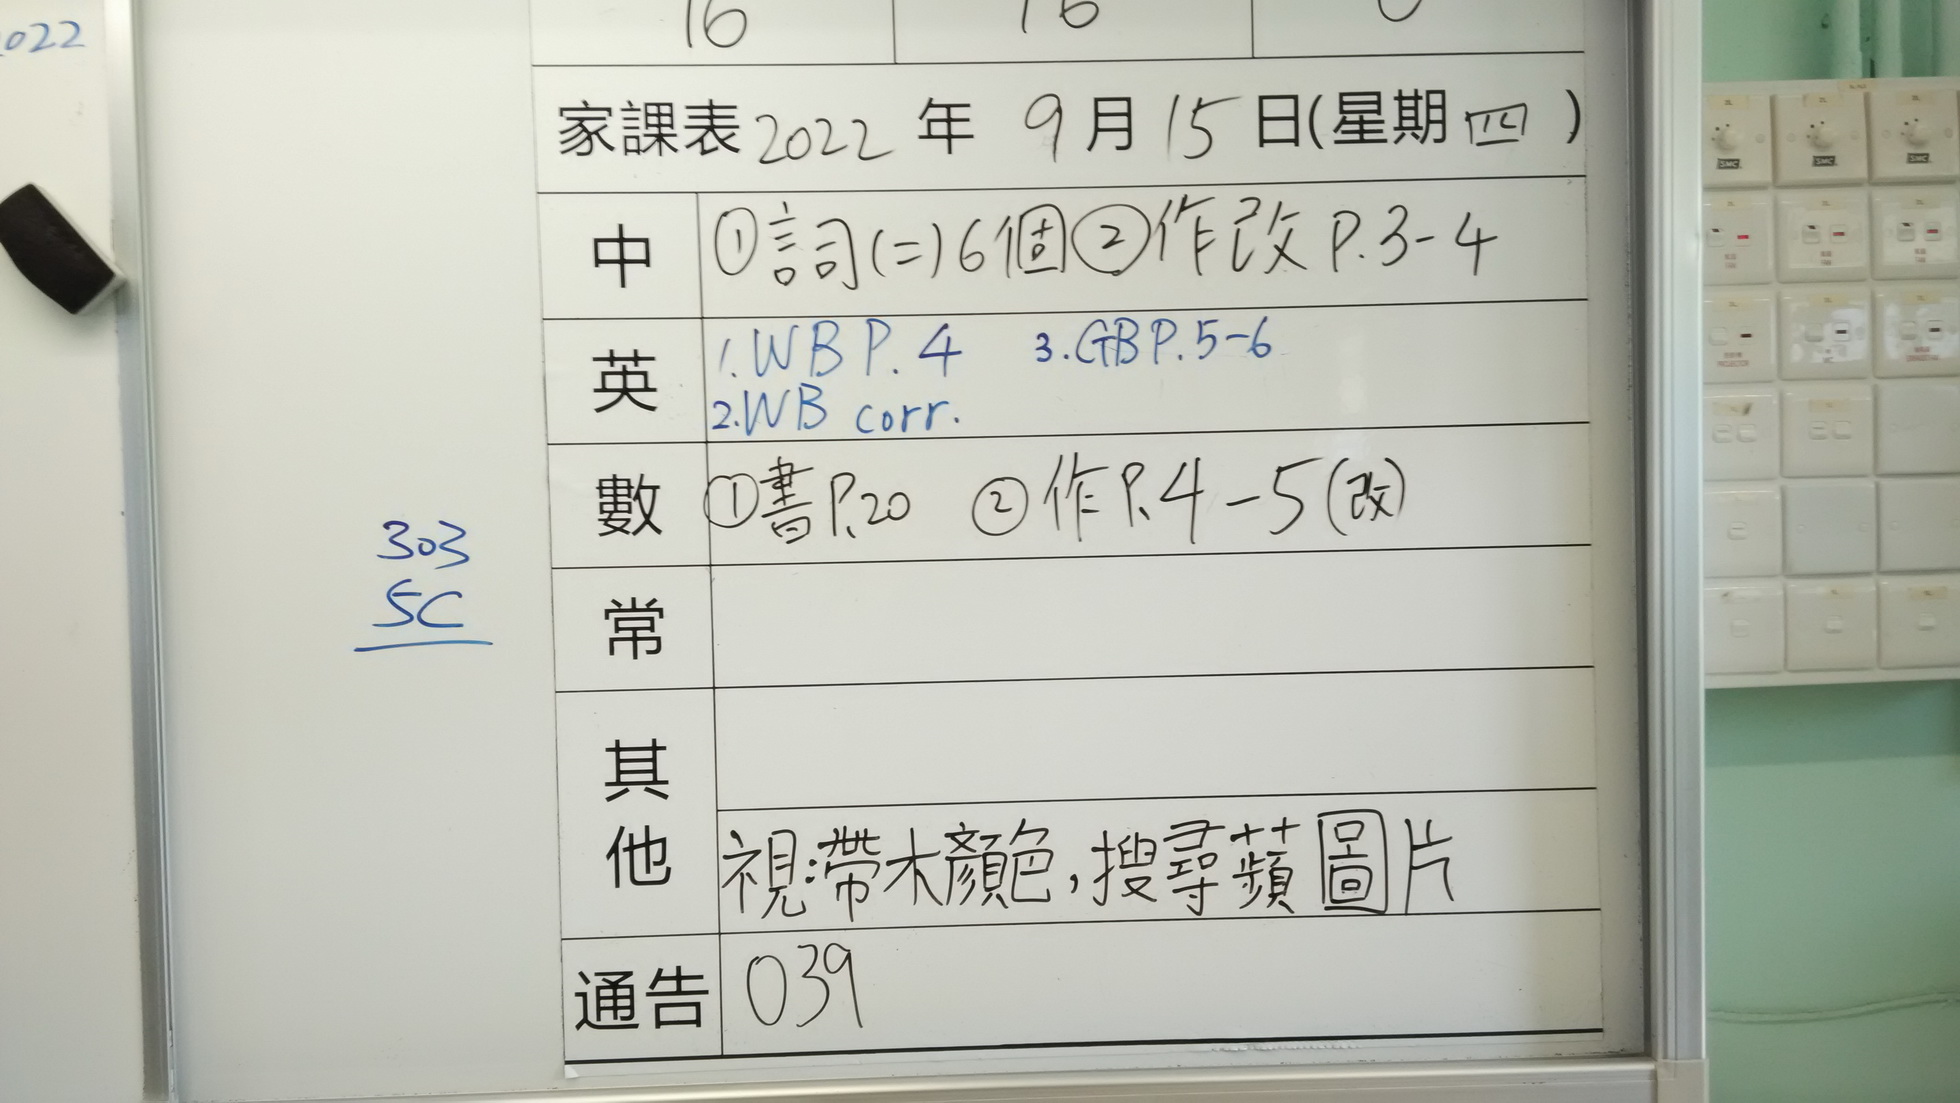 2022
16 16 0
家課表2022年 9月15日(星期四)
中 ①詞(二)6個②作改 P.3-4
英 1.WB P.4 3.GB P.5-6
2.WB corr.
數 ①書P.20 ②作P.4-5(改)
303
5C
常
其他
視:帶木顏色,搜尋蘋圖片
通告 039
SMC SMC SMC